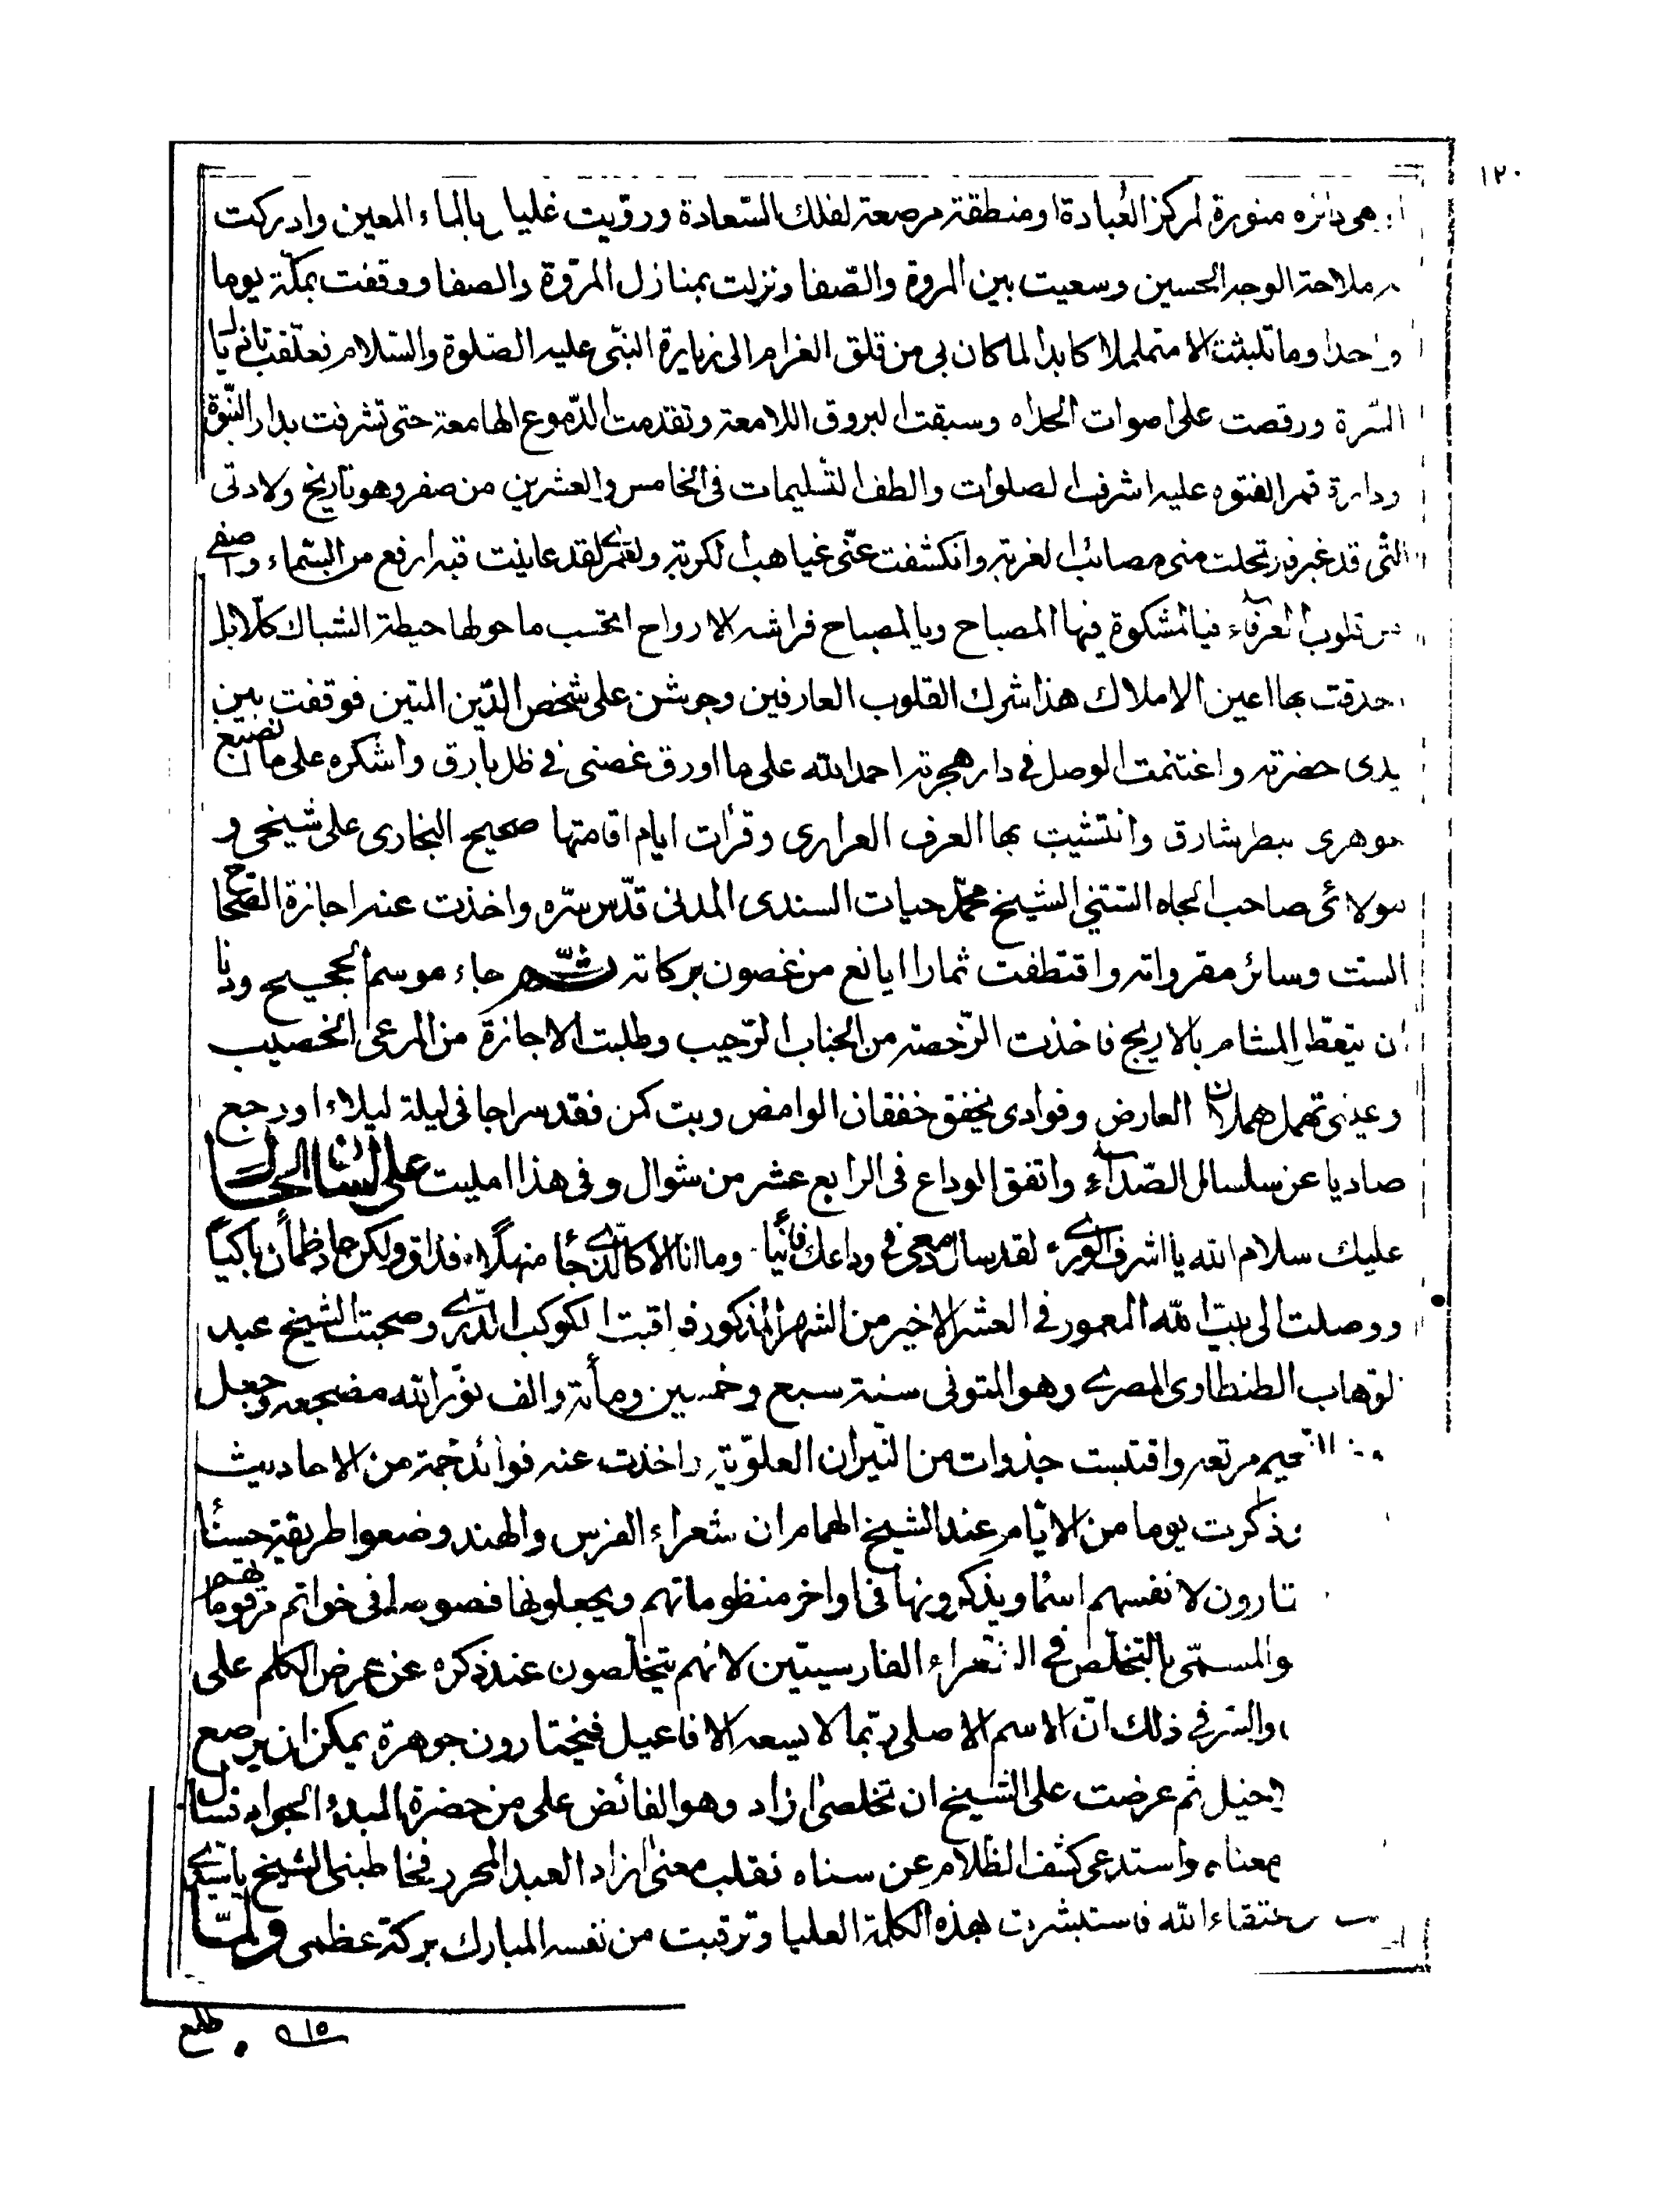 ١٢٠
هى دائره منورة لمركز العبادة او منطقة مرصعة لفلك السّعادة ورويت غليلى بالماء المعين وادركت
ملاحة الوجه الحسين وسعيت بين المروة والصّفا ونزلت بمنازل المروّة والصفا ووقفت بمكّة يوما
واحدا وما تلبثت الا متململا كابدا لما كان بى من قلق الغرام الى زيارة النبّى عليه الصّلوة والسّلام فعلّقت
السّرة ورقصت على اصوات الحداه وسبقت البروق اللامعة وتقدمت الدّموع الهامعة حتى تشرفت بدار النبّوة
ودارة قمر الفتوه عليه اشرف الصلوات والطف التّسليمات فى الخامس والعشرين من صفر وهو تاريخ ولادتى
التى قد غبر فارتحلت منى مصائب الغربة وانكشفت عنّى غياهب الكربة ولعمرى لقد عاينت قبة ارفع من السّماء واصفى
من قلوب العرفاء فيا لمشكوة فيها المصباح ويا لمصباح فراشه الارواح اتحسب ما حولها حيطة الشباك كلّا بل
احدقت بها اعين الاملاك هذا شرك القلوب العارفين وجوشن على شخص الدّين المتين فوقفت بين
يدى حضرته واغتنمت الوصل فى دار هجرته احمد الله على ما اورق غصنى فى ظل بارق واشكره على ما نصبغ
جوهرى بيطر شارق وانتشيت بها العرف العرارى وقرأت ايام اقامتها صحيح البخارى على شيخى و
مولائى صاحب الجاه السّنى الشيخ محمّد حيات السندى المدنى قدّس سرّه واخذت عنه اجازة الصّحاح
الست وسائر مقرواته واقتطفت ثمارا ايانع من غصون بركاته ثمّ جاء موسم الحجيج ودنا
ان يتعطر المشام بالاريج فاخذت الرّخصة من الجناب الرّحيب وطلبت الاجازة من المرعى الخصيب
وعينى تهمل هملان العارض وفوادى يخفق خفقان الوامض وبت كمن فقد سراجا فى ليلة ليلاء او رجع
صاديا عن سلسال الصّدآء واتفق الوداع فى الرابع عشر من شوال وفى هذا امليت على لسان الحال
عليك سلام الله يا اشرف الورى لقد سال دمعى فى وداعك قانيا وما انا الا كالّذى جا منهلا فذاق ولكن عاد ظمأن باكيا
ووصلت الى بيت الله المعمور فى العشر الاخير من الشهر المذكور فراقبت الكوكب الدّرى وصحبت الشيخ عبد
الوهاب الطنطاوى المصرى وهو المتوفى سنة سبع وخمسين ومأة والف نوّر الله مضجعه وجعل
النعيم مرتعه واقتبست جذوات من النّيران العلويّة واخذت عنه فوائد جمة من الاحاديث
وذكرت يوما من الايّام عند الشيخ الهمام ان شعراء الفرس والهند وضعوا طريقة حسنا
تارون لانفسهم اسما ويذكرونها فى اواخر منظوماتهم ويجعلونها فصوصا فى خواتم مرقوماتهم
والمسمّى بالتّخلّص فى الشعراء الفارسييّن لانهم يتخلّصون عند ذكره عن عرض الكلم على
والسّر فى ذلك انّ الاسم الاصلى ربّما لا يسعه الافاعيل فيختارون جوهرة يمكن ان يرصع
ثم عرضت على الشّيخ ان تخلصى ازاد وهو الفائض على من حضرة المبدء الجواد فسأل
معناه واستدعى كشف الظلام عن سناه فقلت معنى ازاد العبد المحرر فخاطبنى الشيخ يا سيّدى
عتقاء الله فاستبشرت بهذه الكلمة العليا وترقبت من نفسه المبارك بركة عظمى ولمّا
طلع